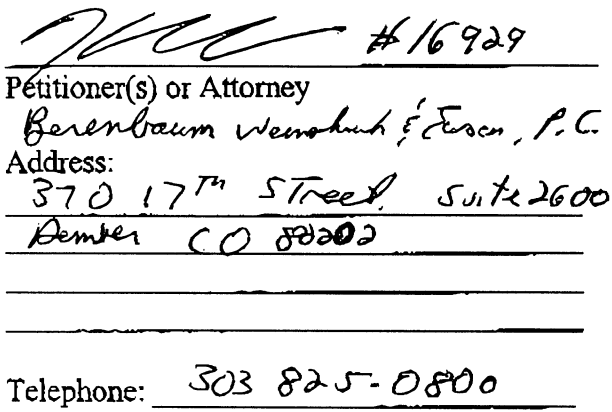 #16929
Petitioner(s) or Attorney
Berenbaum Weinshienk & Eason, P.C.
Address:
370 17th Street, Suite 2600
Denver CO 80202
Telephone: 303 825-0800